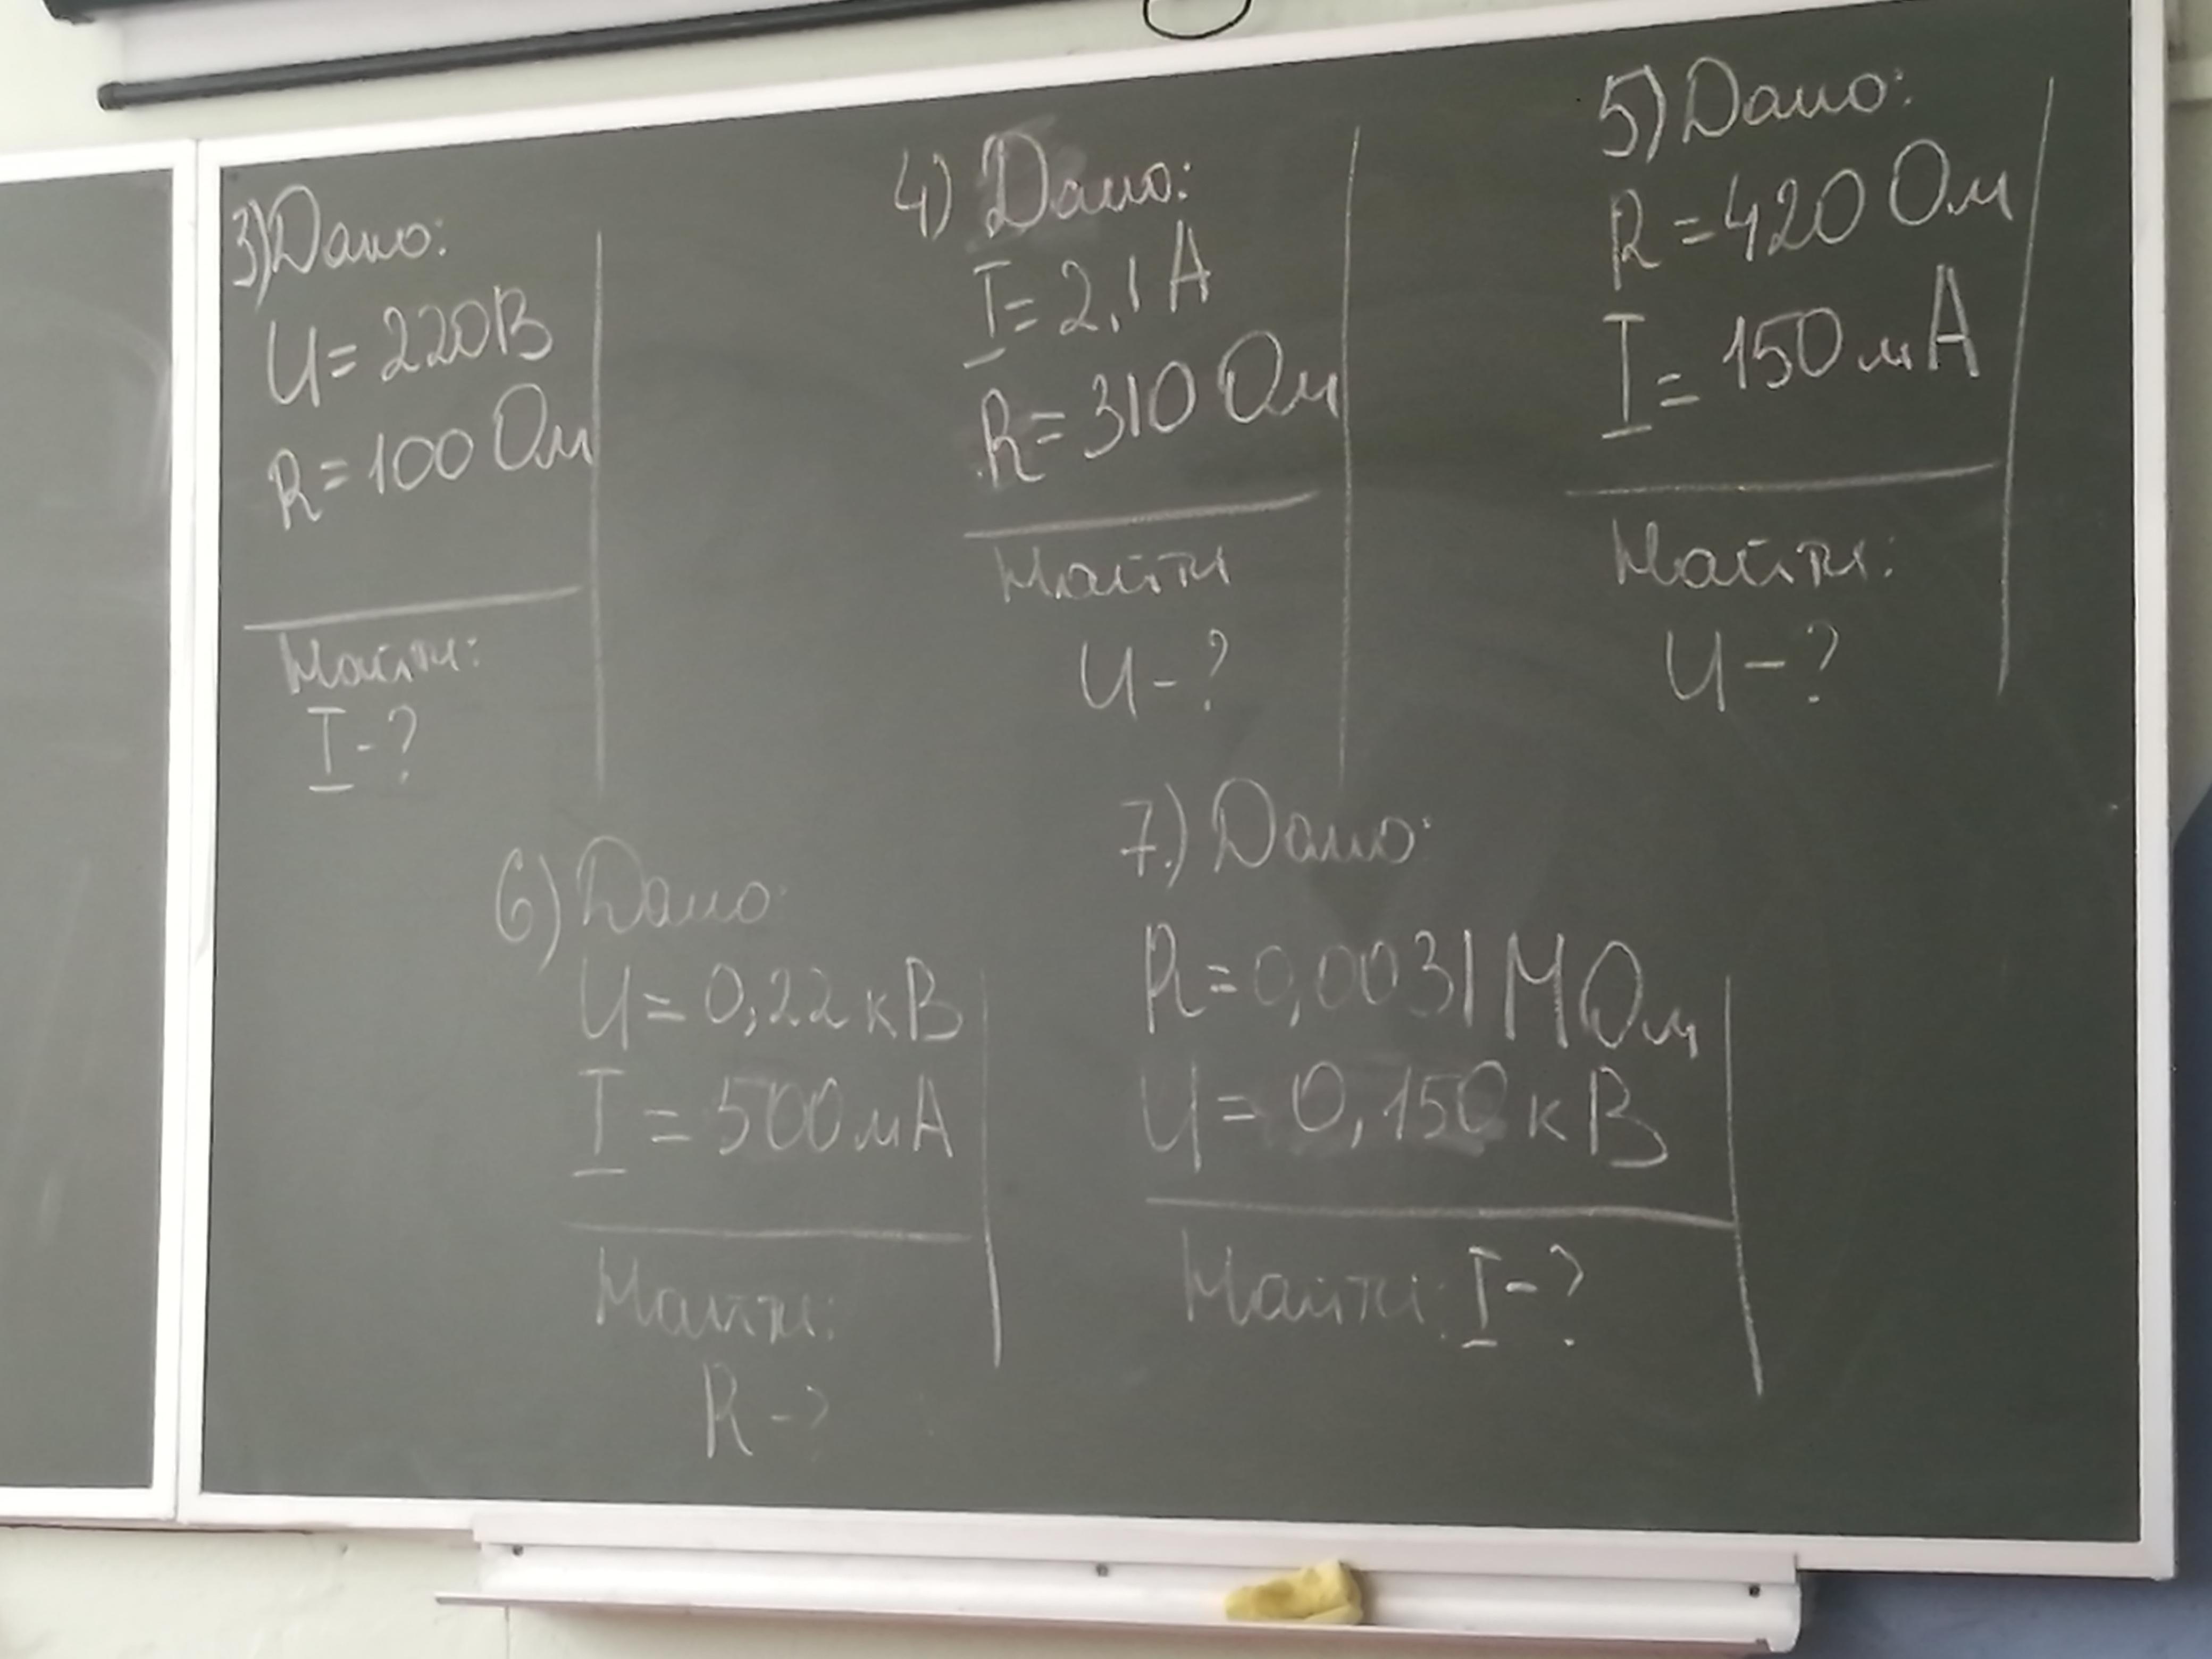 3) Дано:
U = 220 В
R = 100 Ом
Найти:
I - ?
4) Дано:
I = 2,1 А
R = 310 Ом
Найти
U - ?
5) Дано:
R = 420 Ом
I = 150 мА
Найти:
U - ?
6) Дано:
U = 0,22 кВ
I = 500 мА
Найти:
R - ?
7.) Дано:
R = 0,0031 МОм
U = 0,150 кВ
Найти: I - ?